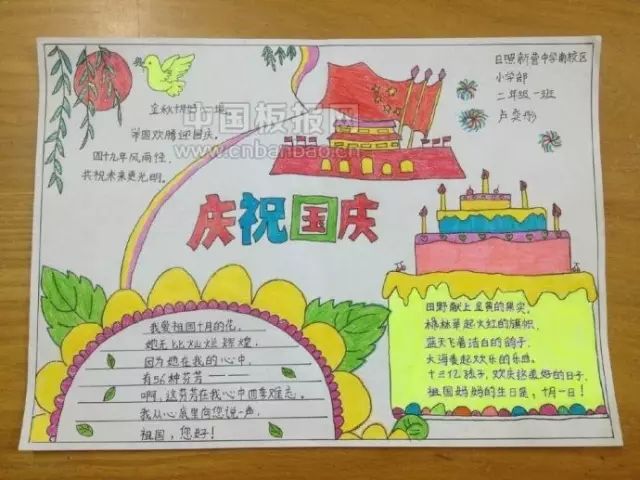 日照新营中学南校区
小学部
二年级一班
卢奕彤
金秋十月
举国欢腾迎国庆。
四十九年风雨径，
共祝未来更光明。
中国板报网
www.cnbanbao.cn
庆祝国庆
我爱祖国十月的花，
她无比灿烂辉煌，
因为她在我的心中
有56种芬芳————
啊，这芬芳在我心中四季难忘。
我从心底里向您说一声
祖国，您好！
田野献上金黄的果实，
枫林举起火红的旗帜，
蓝天飞着洁白的鸽子，
大海奏起欢乐的乐曲。
十三亿孩子，欢庆这美好的日子，
祖国妈妈的生日是，十月一日！